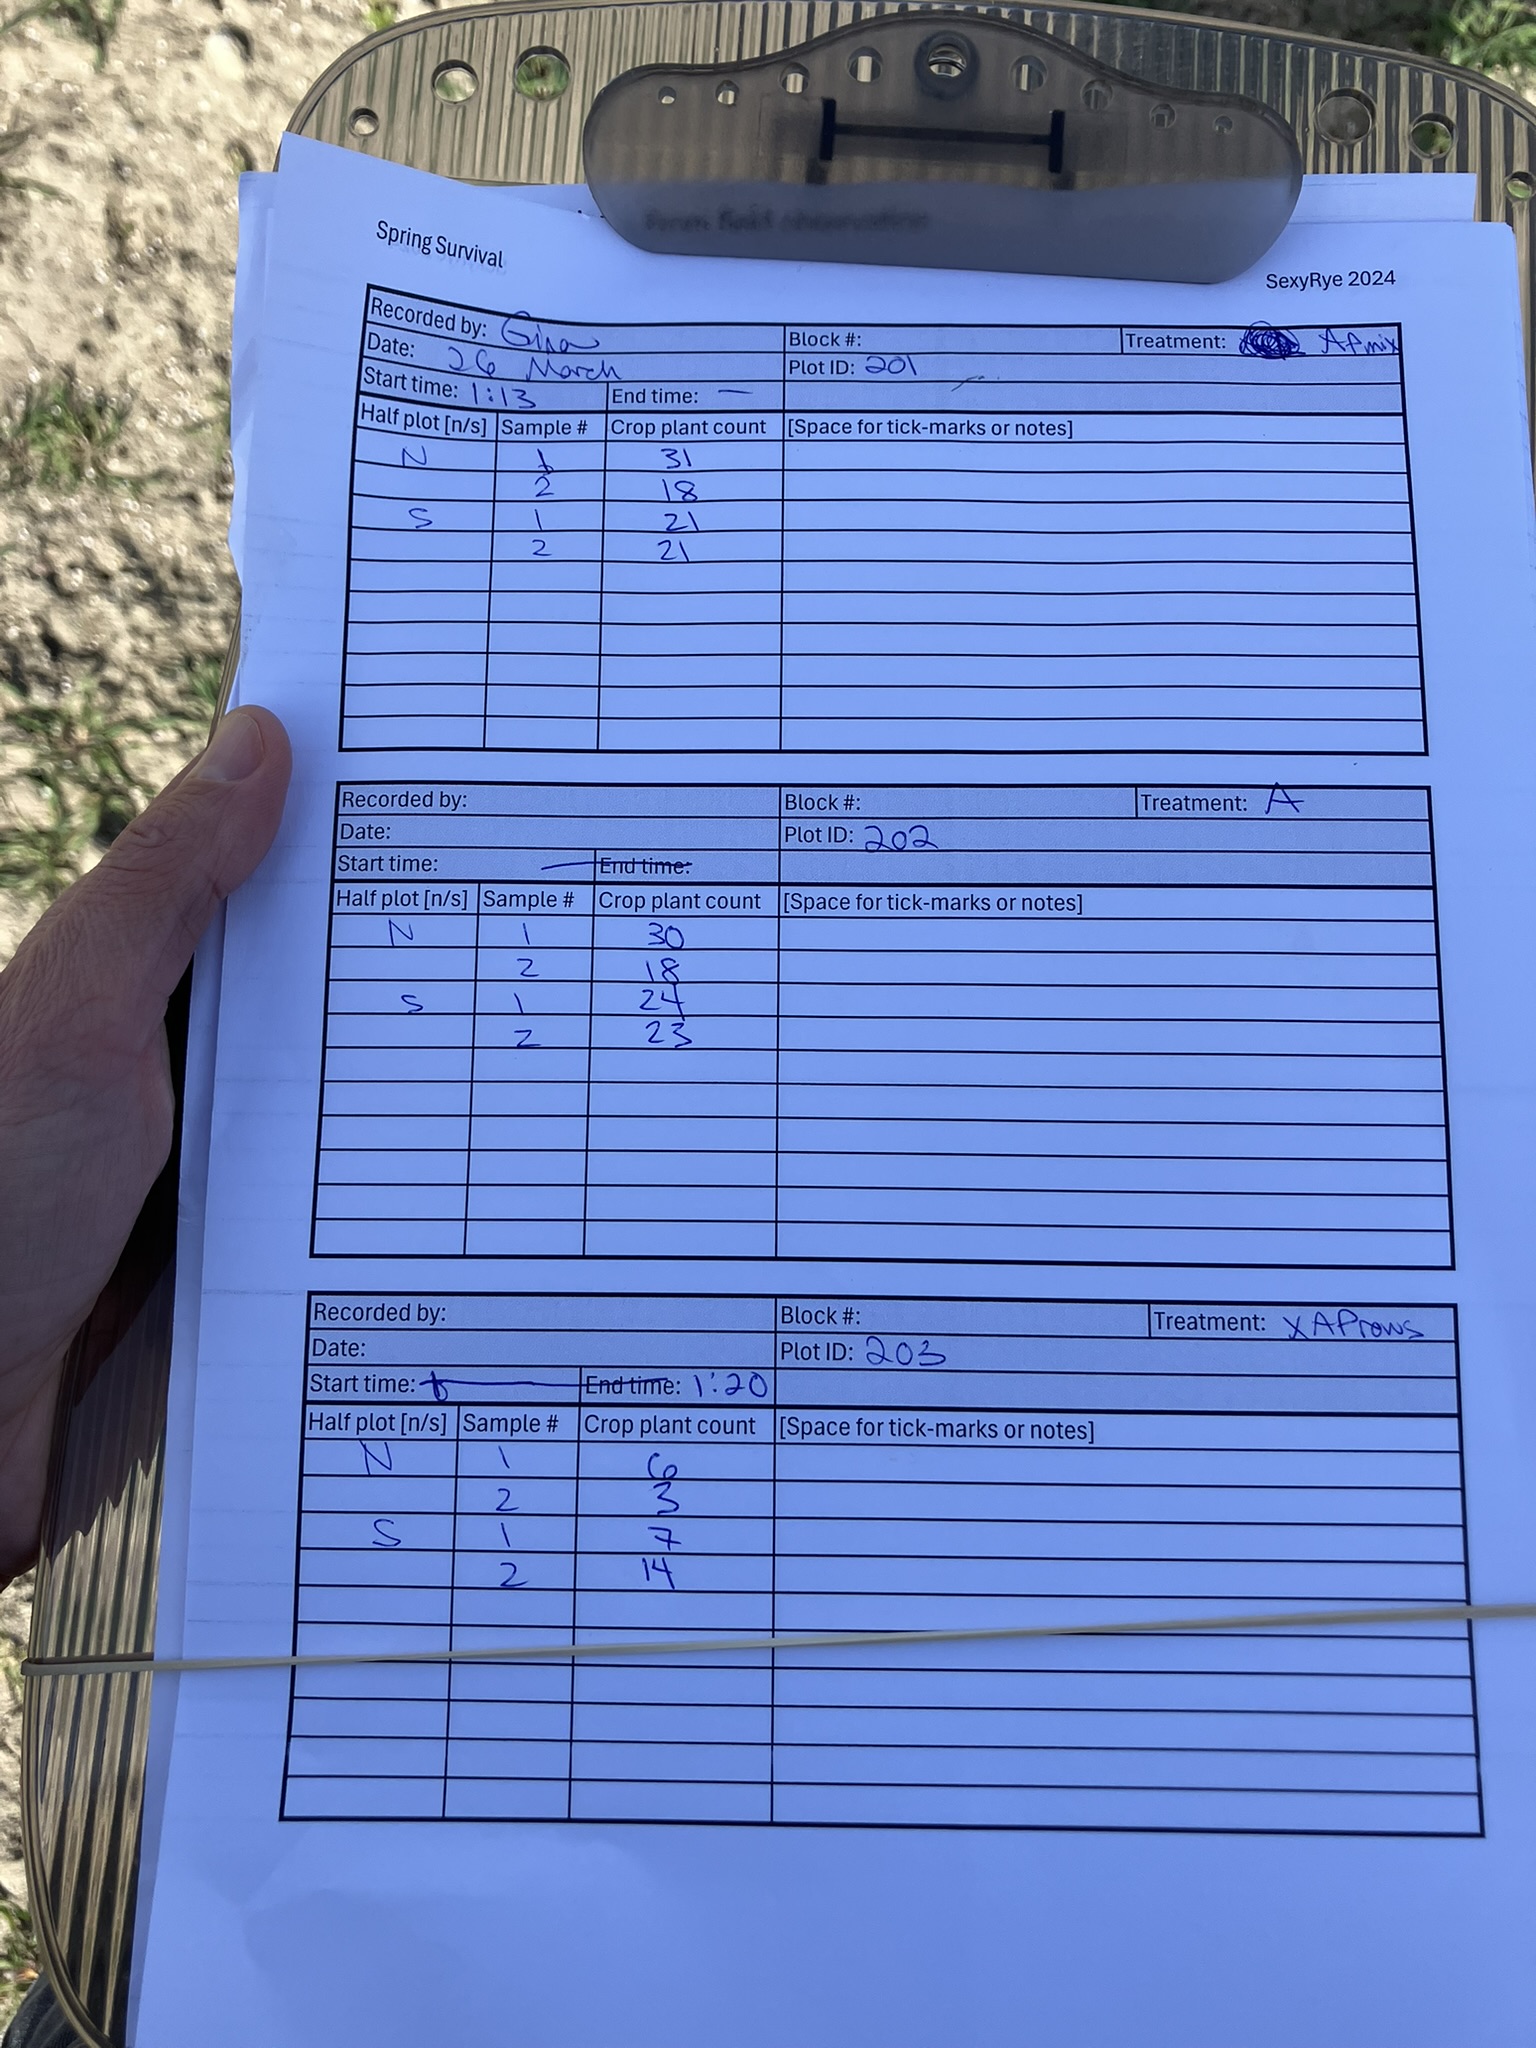 Spring Survival
SexyRye 2024
Recorded by: Gina
Block #:
Treatment: APmix
Date: 26 March
Plot ID: 201
Start time: 1:13
End time: —
Half plot [n/s] Sample # Crop plant count [Space for tick-marks or notes]
N 1 31
2 18
S 1 21
2 21
Recorded by:
Block #:
Treatment: A
Date:
Plot ID: 202
Start time:
End time:
Half plot [n/s] Sample # Crop plant count [Space for tick-marks or notes]
N 1 30
2 18
S 1 24
2 23
Recorded by:
Block #:
Treatment: XAProws
Date:
Plot ID: 203
Start time:
End time: 1:20
Half plot [n/s] Sample # Crop plant count [Space for tick-marks or notes]
N 1 6
2 3
S 1 7
2 14